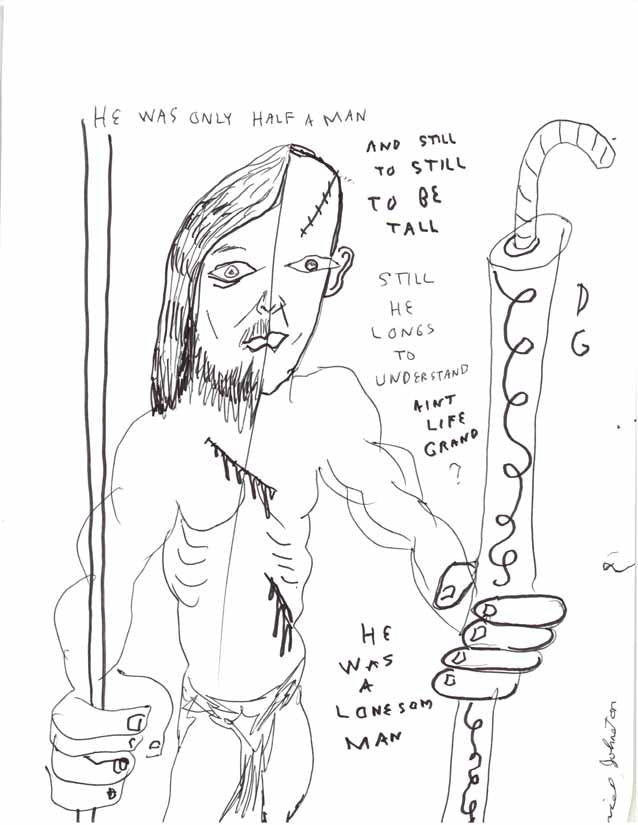 HE WAS ONLY HALF A MAN
AND STILL
TO STILL
TO BE
TALL
STILL
HE
LONGS
TO
UNDERSTAND
AINT
LIFE
GRAND
?
HE
WAS
A
LONESOM
MAN
D
G
Johnston